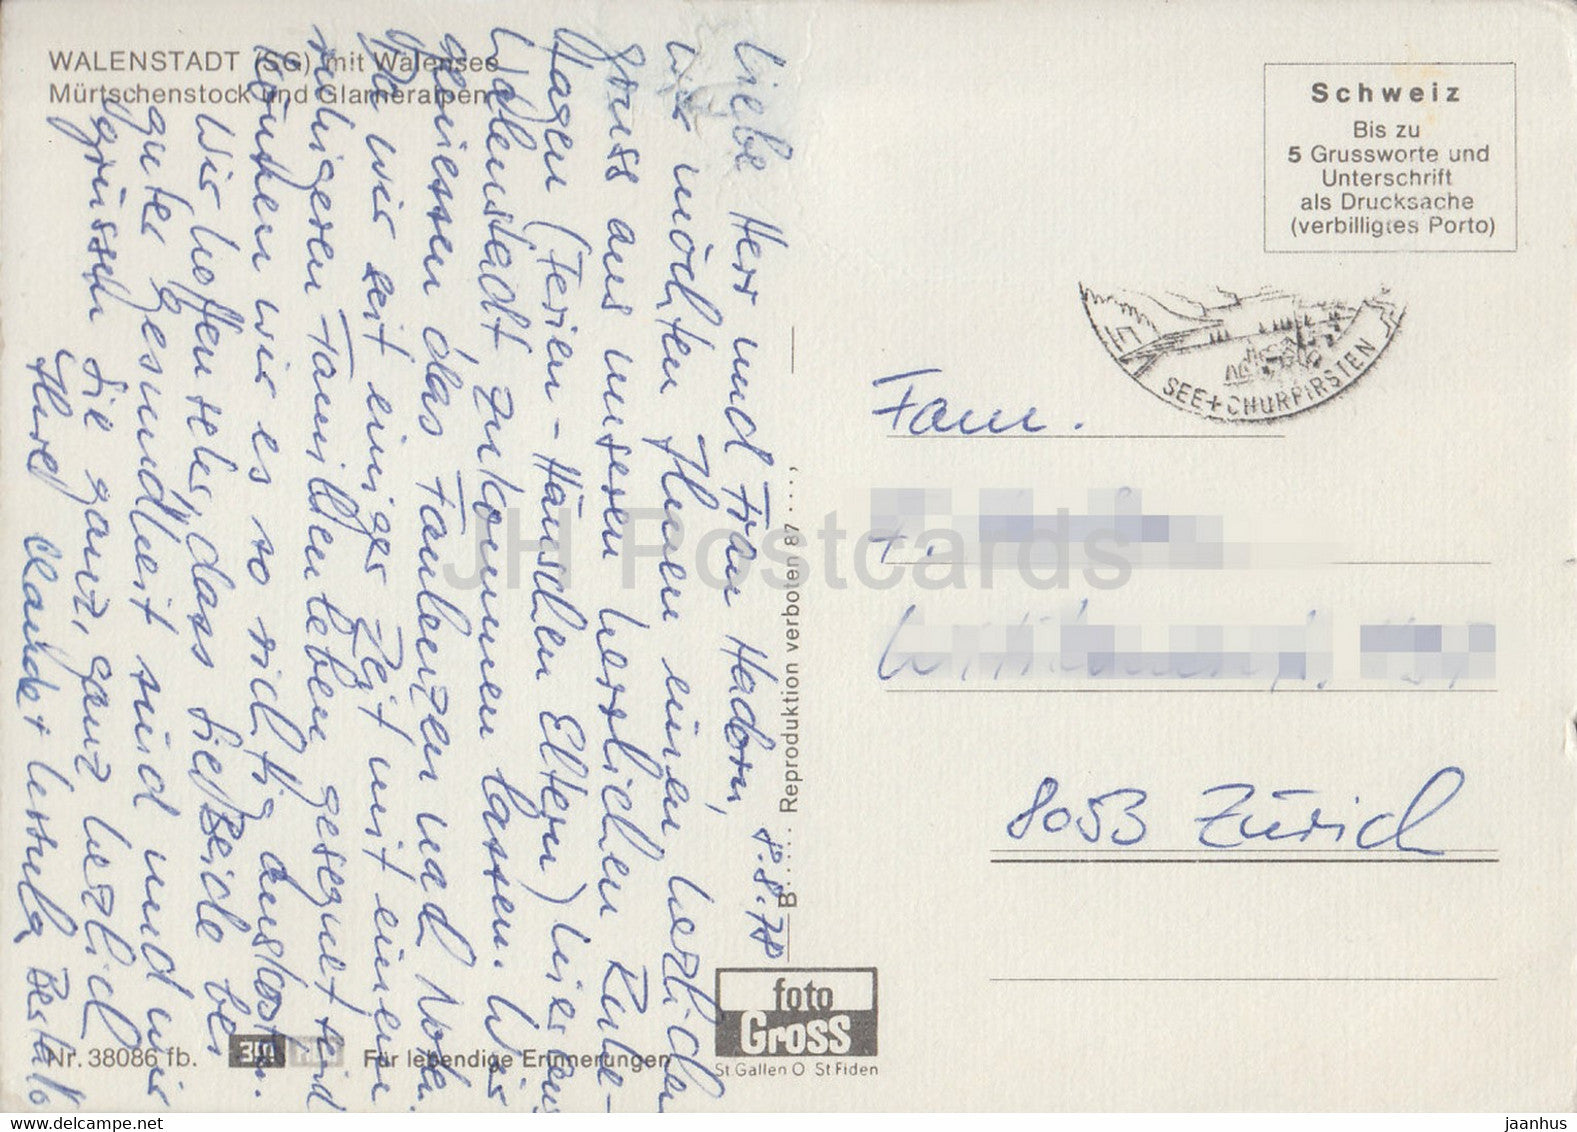 WALENSTADT (SG) mit Walensee
Mürtschenstock und Glarneralpen
Schweiz
Bis zu
5 Grussworte und
Unterschrift
als Drucksache
(verbilligtes Porto)
SEE + CHURFIRSTEN
8.8.78
Liebe Herr und Frau Hadorn,
wir möchten Ihnen einen herzlichen
Gruss aus unseren herrlichen Ruhe-
tagen (Ferien-Häuschen Eltern) hier aus
Walenstadt zukommen lassen. Wir
geniessen das Faulenzen und
Da wir seit einiger Zeit mit einem
ruhigeren Familienleben gesegnet sind
können wir es so richtig auskosten.
Wir hoffen sehr, dass Sie Beide bei
guter Gesundheit sind und wir
grüssen Sie ganz, ganz herzlich
Ihre Claude + Ursula
Fam.
8053 Zürich
B..... Reproduktion verboten 87....,
JH Postcards
foto
Gross
St.Gallen O St Fiden
Nr. 38086 fb.
Für lebendige Erinnerungen
delcampe.net
jaanhus